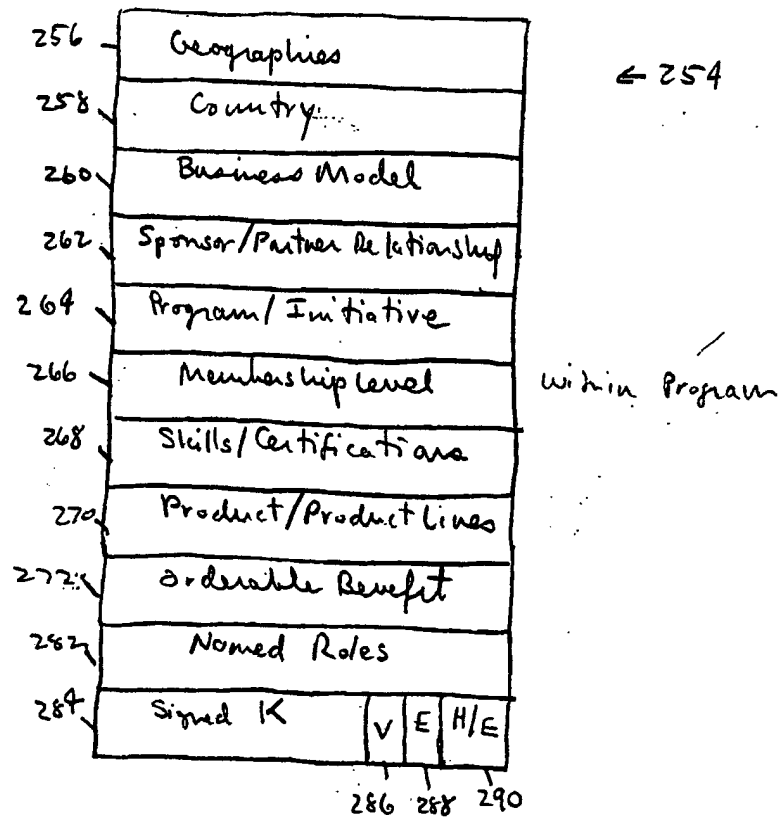 256 Geographies
← 254
258 Country
260 Business Model
262 Sponsor/Partner Relationship
264 Program/Initiative
266 Membership Level within Program
268 Skills/Certifications
270 Product/Product Lines
272 Orderable Benefit
282 Named Roles
284 Signed K V E H/E
286 288 290